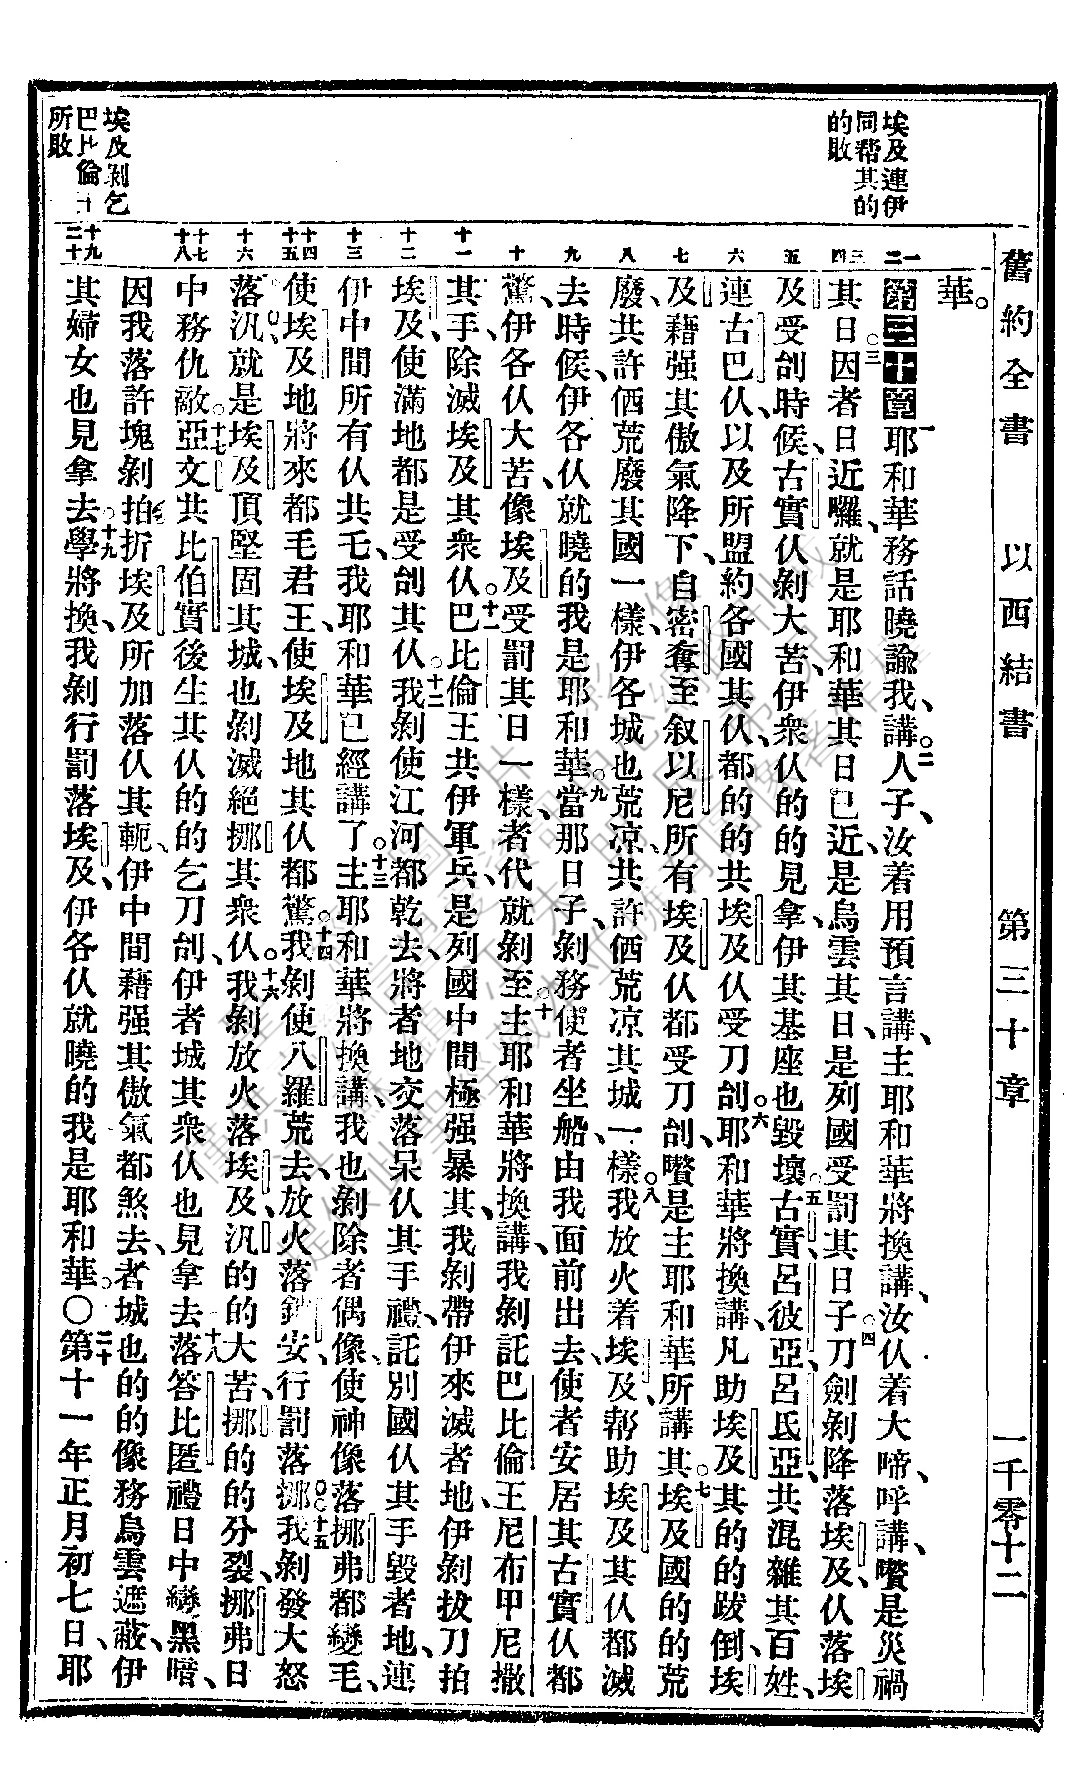 舊約全書 以西結書 第三十章 一千零十二
埃及連伊
同幫其的
的敗
埃及剝乞
巴比倫王
所敗
一二
三四
五
六
七
八
九
十
十一
十二
十三
十四十五
十六
十七十八
十九二十
華。
第三十章一耶和華務話曉諭我講、二人子、汝着用預言講、主耶和華將換講、汝仈着大啼呼講、囋是災禍
其日、三因者日近囉、就是耶和華其日已近、是烏雲其日、是列國受罰其日子、四刀劍剝降落埃及、仈落埃
及受創時候、古實仈剝大苦、伊衆仈的的見拿、伊其基座也毀壞、五古實、呂彼亞、呂氏亞、共混雜其百姓、
連古巴仈、以及所盟約各國其仈、都的的共埃及仈受刀創。六耶和華將換講、凡助埃及其的的跋倒、埃
及藉强其傲氣降下、自密奪至叙以尼所有埃及仈都受刀創、囋是主耶和華所講其。七埃及國的的荒
廢、共許伵荒廢其國一樣、伊各城也荒凉、共許伵荒凉其城一樣。八我放火着埃及、幫助埃及其仈都滅
去時候、伊各仈就曉的我是耶和華。九當那日子、剝務使者坐船、由我面前出去、使者安居其古實仈都
驚、伊各仈大苦、像埃及受罰其日一樣、者代就剝至。十主耶和華將換講、我剝託巴比倫王尼布甲尼撒
其手、除滅埃及其衆仈。十一巴比倫王共伊軍兵、是列國中間極强暴其、我剝帶伊來滅者地、伊剝拔刀拍
埃及、使滿地都是受創其仈。十二我剝使江河都乾去、將者地交落呆仈其手裡、託別國仈其手毀者地、連
伊中間所有仈共乇、我耶和華已經講了。十三主耶和華將換講、我也剝除者偶像、使神像落挪弗都變毛、
使埃及地將來都毛君王、使埃及地其仈都驚。十四我剝使八羅荒去、放火落鎖安、行罰落挪。十五我剝發大怒
落汛、就是埃及頂堅固其城、也剝滅絕挪其衆仈。十六我剝放火落埃及、汛的的大苦、挪的的分裂、挪弗日
中務仇敵。十七亞文共比伯實後生其仈的的乞刀創、伊者城其衆仈也見拿去。十八落答比匿禮日中變黑暗、
因我落許塊剝拍折埃及所加落仈其軛、伊中間藉强其傲氣都煞去、者城也的的像務烏雲遮蔽、伊
其婦女也見拿去。十九學將換、我剝行罰落埃及、伊各仈就曉的我是耶和華。〇二十第十一年正月初七日、耶